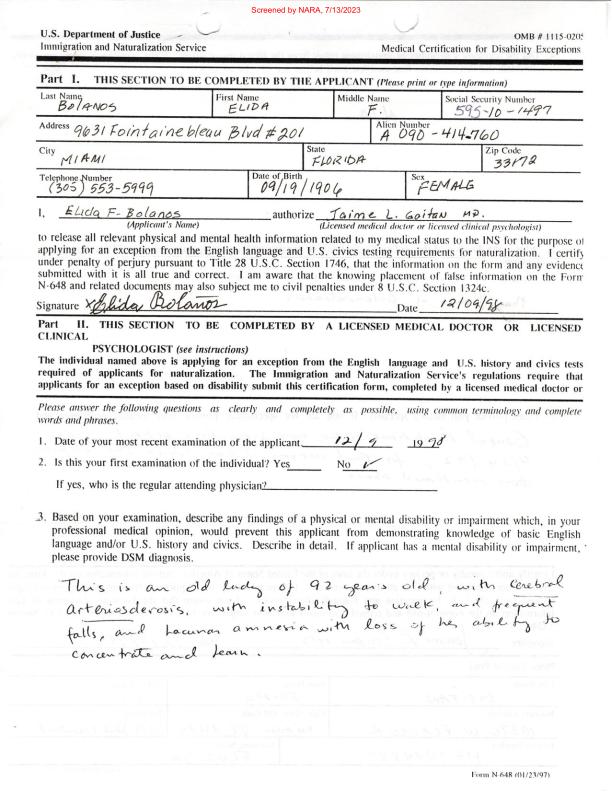 Screened by NARA, 7/13/2023
U.S. Department of Justice
OMB # 1115-0205
Immigration and Naturalization Service
Medical Certification for Disability Exceptions
Part I. THIS SECTION TO BE COMPLETED BY THE APPLICANT (Please print or type information)
Last Name First Name Middle Name Social Security Number
BOLANOS ELIDA F. 595-10-1497
Address 9631 Fointainebleau Blvd #201 Alien Number A 090-414-760
City State Zip Code
MIAMI FLORIDA 33172
Telephone Number Date of Birth Sex
(305) 553-5999 09/19/1906 FEMALE
I, Elida F- Bolanos authorize Jaime L. Gaitan MD.
(Applicant's Name) (Licensed medical doctor or licensed clinical psychologist)
to release all relevant physical and mental health information related to my medical status to the INS for the purpose of
applying for an exception from the English language and U.S. civics testing requirements for naturalization. I certify
under penalty of perjury pursuant to Title 28 U.S.C. Section 1746, that the information on the form and any evidence
submitted with it is all true and correct. I am aware that the knowing placement of false information on the Form
N-648 and related documents may also subject me to civil penalties under 8 U.S.C. Section 1324c.
Signature x Elida Bolaños Date 12/09/98
Part II. THIS SECTION TO BE COMPLETED BY A LICENSED MEDICAL DOCTOR OR LICENSED
CLINICAL
PSYCHOLOGIST (see instructions)
The individual named above is applying for an exception from the English language and U.S. history and civics tests
required of applicants for naturalization. The Immigration and Naturalization Service's regulations require that
applicants for an exception based on disability submit this certification form, completed by a licensed medical doctor or
Please answer the following questions as clearly and completely as possible, using common terminology and complete
words and phrases.
1. Date of your most recent examination of the applicant 12/9 1998
2. Is this your first examination of the individual? Yes No ✓
If yes, who is the regular attending physician?
3. Based on your examination, describe any findings of a physical or mental disability or impairment which, in your
professional medical opinion, would prevent this applicant from demonstrating knowledge of basic English
language and/or U.S. history and civics. Describe in detail. If applicant has a mental disability or impairment,
please provide DSM diagnosis.
This is an old lady of 92 years old, with cerebral
arteriosclerosis, with instability to walk, and frequent
falls, and Lacunar amnesia with loss of her ability to
concentrate and learn.
Form N-648 (01/23/97)